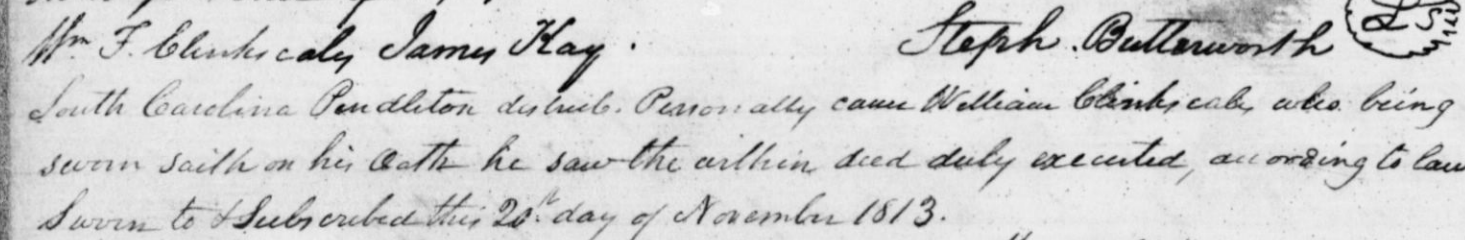 Wm F. Clinkscales James Kay. Steph. Butterworth LS
South Carolina Pendleton district. Personally came William Clinkscales who being
sworn saith on his Oath he saw the within deed duly executed, according to law
Sworn to & Subscribed this 20th day of November 1813.